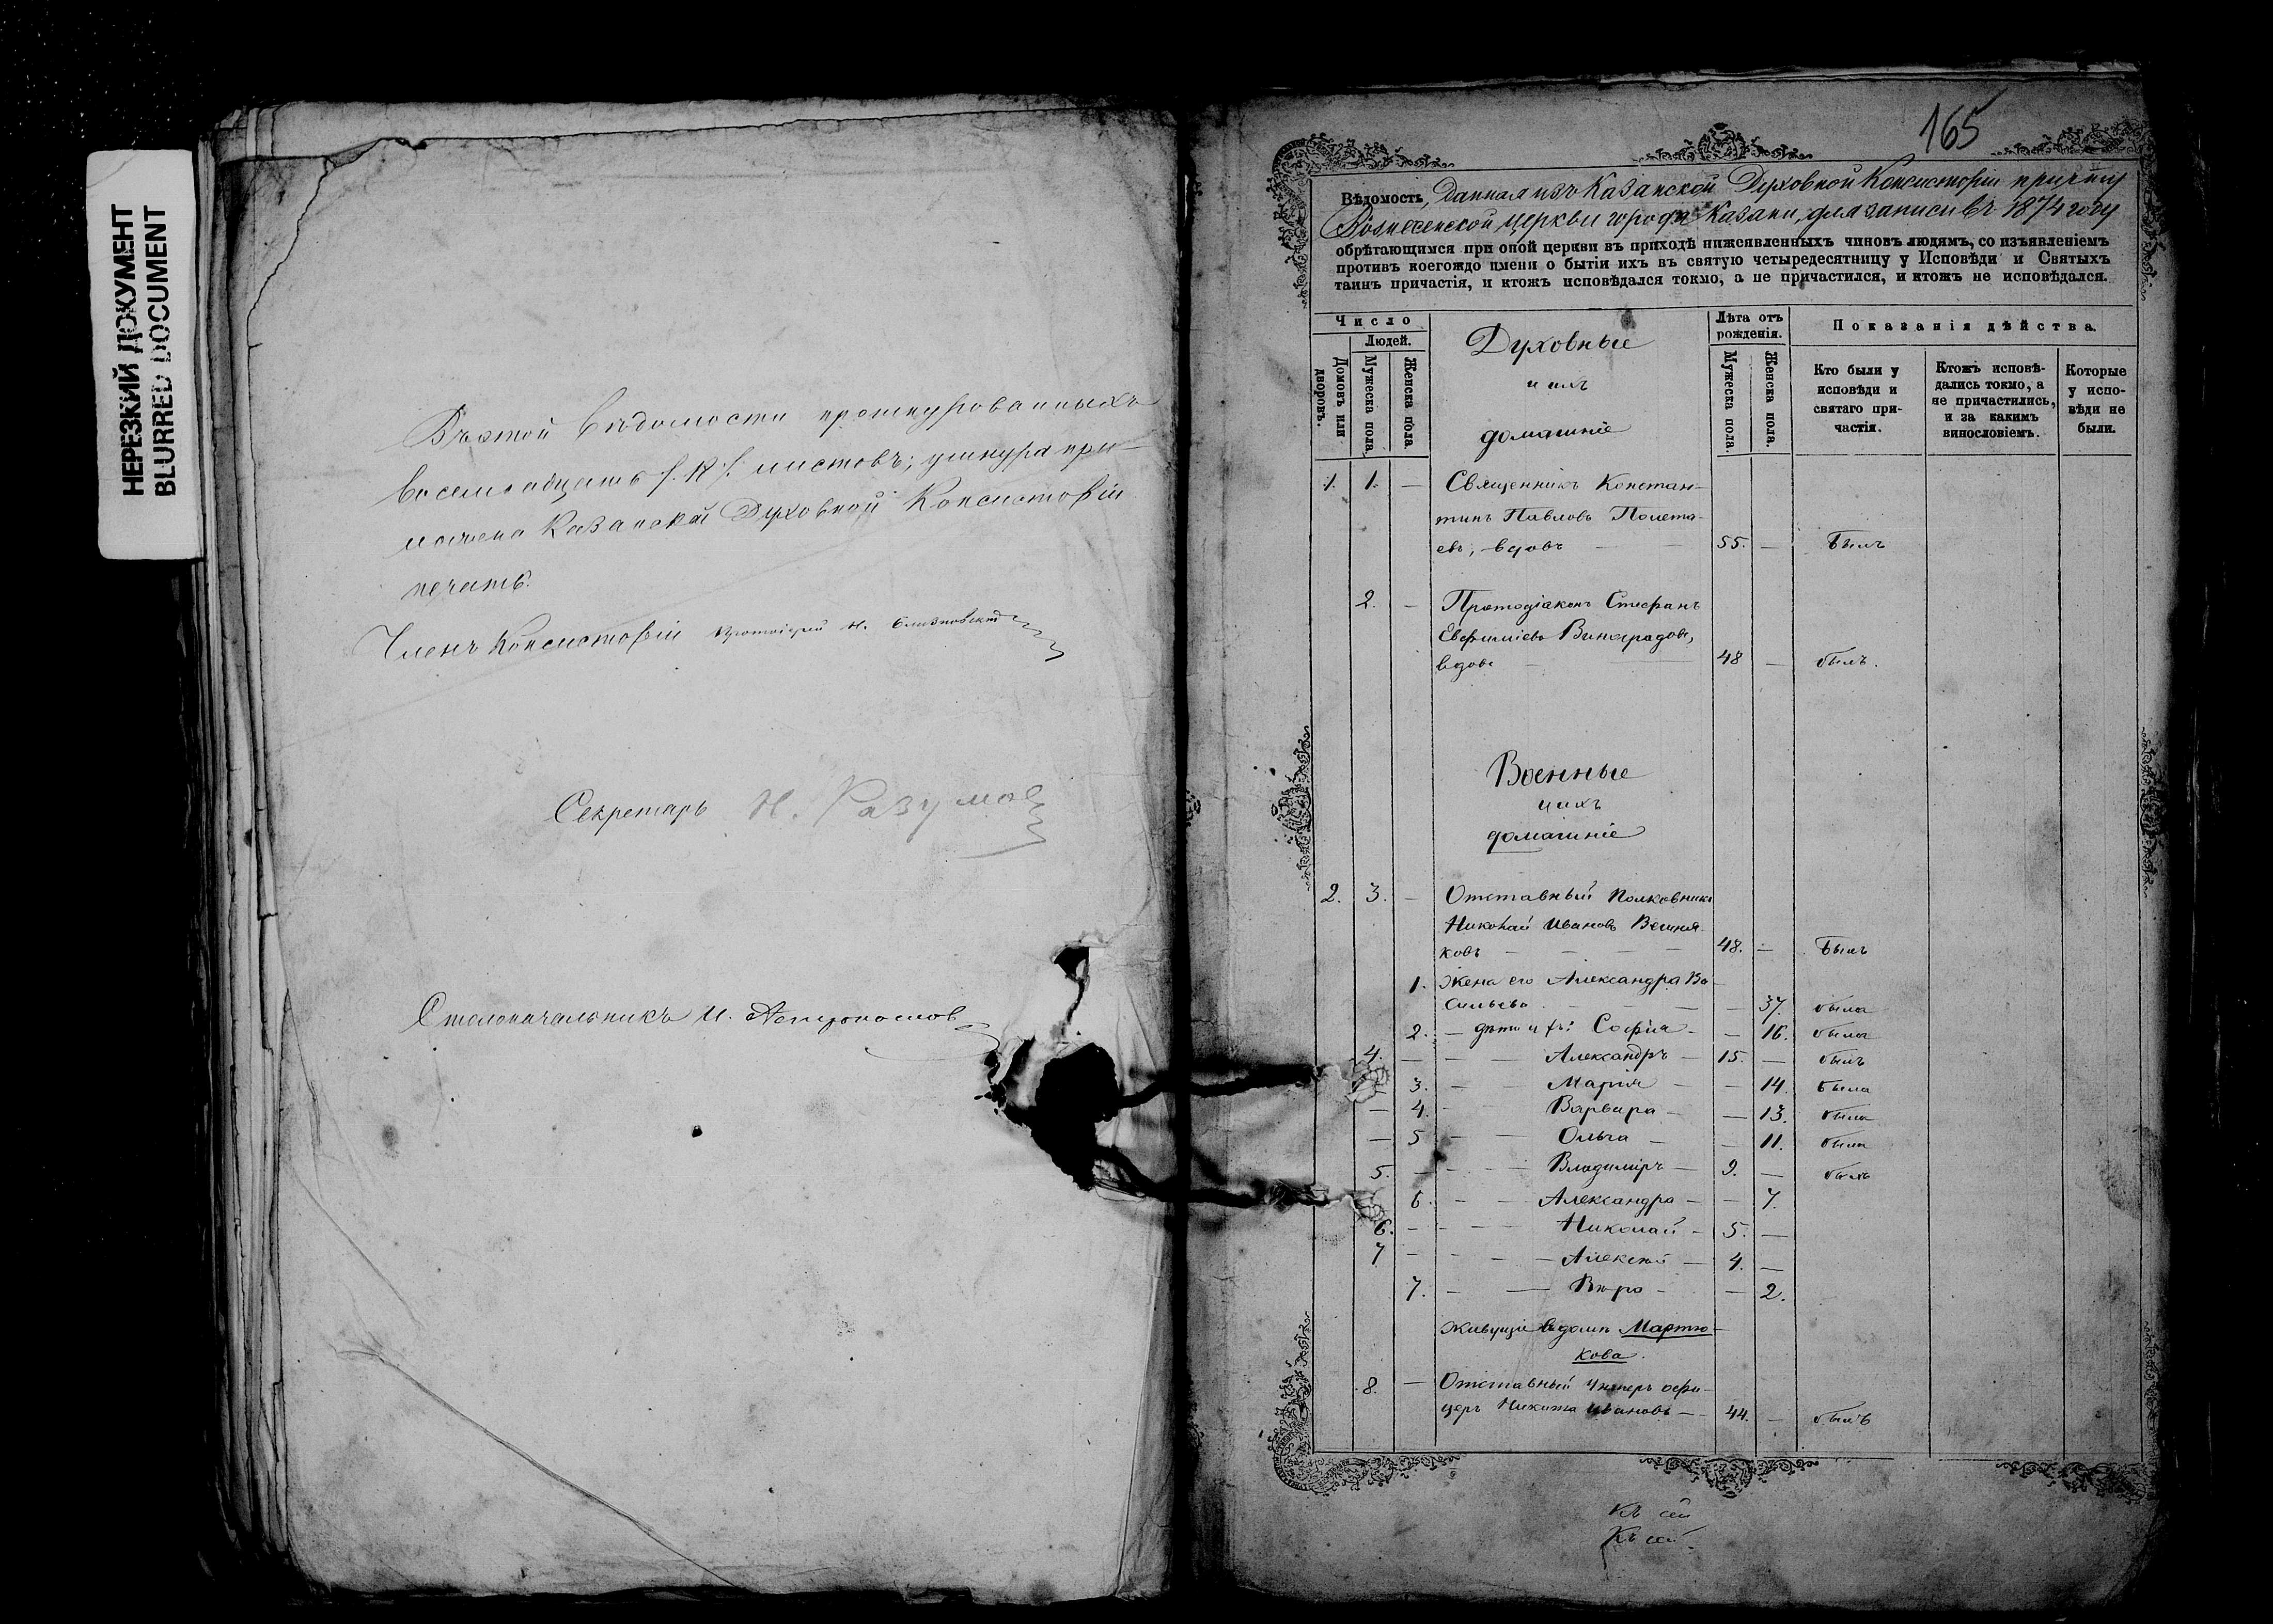 НЕРЕЗКИЙ ДОКУМЕНТ
BLURRED DOCUMENT
Въ этой вѣдомости прошнурованныхъ
восемнадцать /:18:/ листовъ; у шнура при-
ложена Казанской Духовной Консисторіи
печать.
Членъ Консисторіи Протоіерей
Секретарь Н. Разумов
Столоначальникъ И.
165
Вѣдомость, данная изъ Казанской Духовной Консисторіи причту
Вознесенской церкви города Казани, для записи въ 1874 году
обрѣтающимся при оной церкви въ приходѣ нижеявленныхъ чиновъ людямъ, со изъявленіемъ
противъ коегождо имени о бытіи ихъ въ святую четыредесятницу у Исповѣди и Святыхъ
таинъ причастія, и ктожъ исповѣдался токмо, а не причастился, и ктожъ не исповѣдался.
Число
Людей.
Домовъ или дворовъ.
Мужеска пола
Женска пола
Лѣта отъ рожденія.
Мужеска пола
Женска пола.
Показанія дѣйства.
Кто были у исповѣди и святаго причастія.
Ктожъ исповѣдались токмо, а не причастились, и за какимъ винословіемъ.
Которые у исповѣди не были.
Духовные
и ихъ
домашніе
1. 1. — Священникъ Констан-
тинъ Павловъ Полета-
евъ, вдовъ — — 55. — Былъ
2. — Протодіаконъ Стефанъ
Евфиміевъ Виноградовъ,
вдовъ — 48 — былъ.
Военные
и ихъ
домашніе
2. 3. — Отставный Полковникъ
Николай Ивановъ Вешня-
ковъ — — — 48. — Былъ
1. Жена его Александра Ва-
сильева — — 37. была
2. — дѣти ихъ: Софія — — 16. была
4. — — — Александръ — 15. — былъ
3. — — Марія — — 14. была
— 4. — — Варвара — — 13. была
— 5 — — Ольга — — 11. была
5. — — — Владиміръ — 9. — былъ
6. — — Александра — — 7.
6. — — — Николай — 5. —
7 — — — Алексѣй — 4. —
7. — — Вѣра — — 2.
Живущіе въ домѣ Мартю-
кова.
8. — Отставный Унтеръ офи-
церъ Никита Ивановъ — 44. — былъ
Къ сей
Къ сей